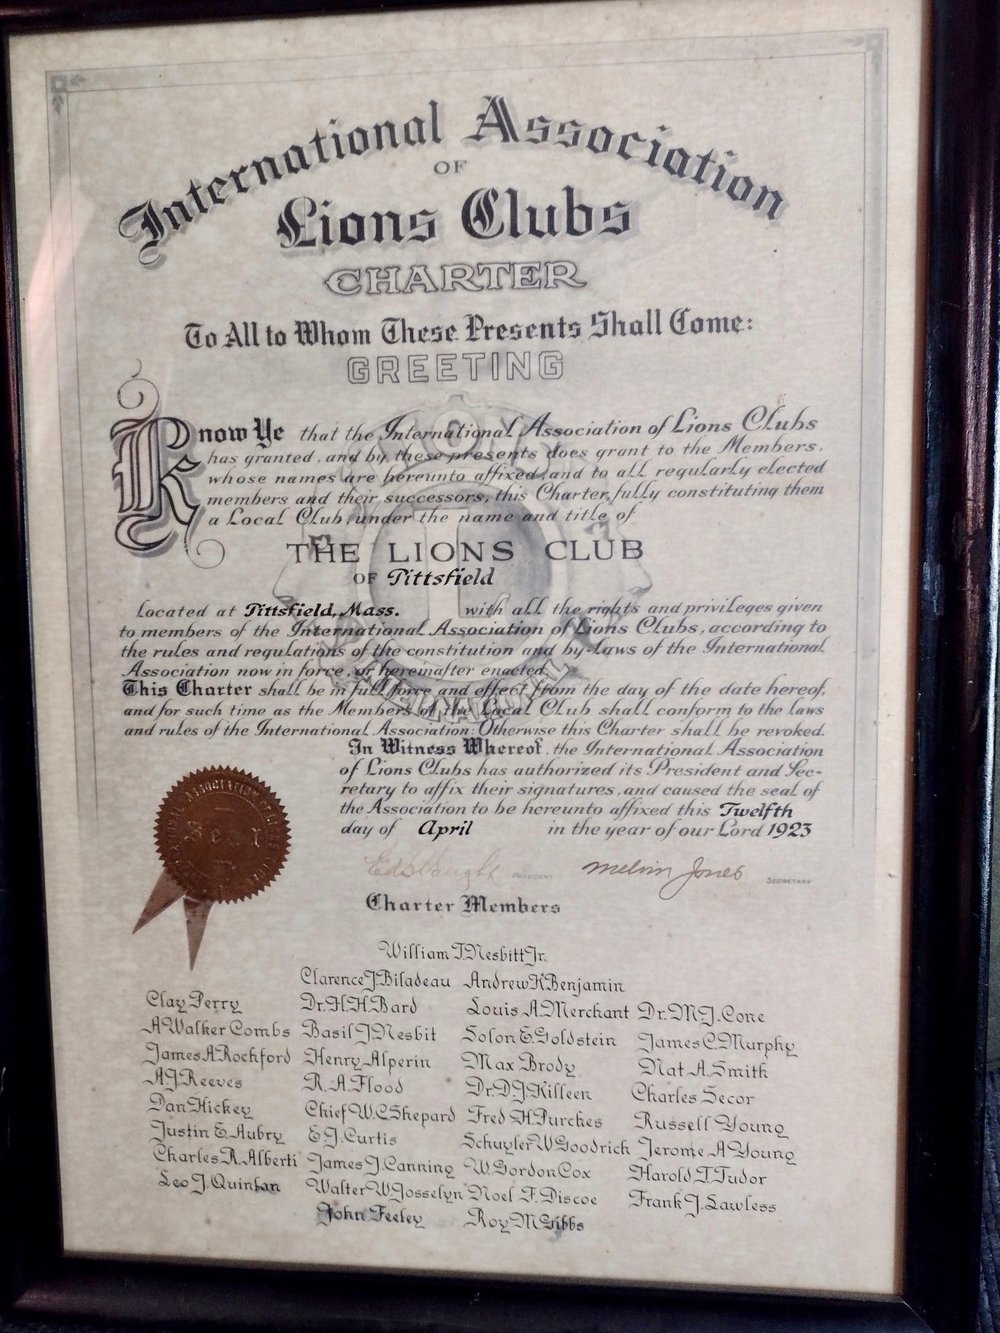 International Association
OF
Lions Clubs
CHARTER
To All to Whom These Presents Shall Come:
GREETING
Know Ye that the International Association of Lions Clubs
has granted, and by these presents does grant to the Members,
whose names are hereunto affixed, and to all regularly elected
members and their successors, this Charter, fully constituting them
a Local Club, under the name and title of
THE LIONS CLUB
OF Pittsfield
Located at Pittsfield, Mass. with all the rights and privileges given
to members of the International Association of Lions Clubs, according to
the rules and regulations of the constitution and by-laws of the International
Association now in force, or hereinafter enacted.
This Charter shall be in full force and effect from the day of the date hereof,
and for such time as the Members of the Local Club shall conform to the laws
and rules of the International Association: Otherwise this Charter shall be revoked.
In Witness Whereof, the International Association
of Lions Clubs has authorized its President and Sec-
retary to affix their signatures, and caused the seal of
the Association to be hereunto affixed this Twelfth
day of April in the year of our Lord 1923
Ed S Vaught PRESIDENT Melvin Jones SECRETARY
Seal
Charter Members
William T. Nesbitt Jr.
Clarence J Biladeau Andrew K Benjamin
Clay Perry Dr. H. H. Bard Louis A. Merchant Dr. M. J. Cone
A Walker Combs Basil J. Nesbit Solon E. Goldstein James C. Murphy
James A Rockford Henry Alperin Max Brody Nat A. Smith
A J. Reeves R. A. Flood Dr. D J Killeen Charles Secor
Dan Hickey Chief W. C. Shepard Fred H. Purches Russell Young
Justin E. Aubry E J. Curtis Schuyler W Goodrich Jerome A Young
Charles R. Alberti James J. Canning W Gordon Cox Harold T. Tudor
Leo J. Quinlan Walter W Josselyn Noel F. Discoe Frank J. Lawless
John Feeley Roy M Gibbs